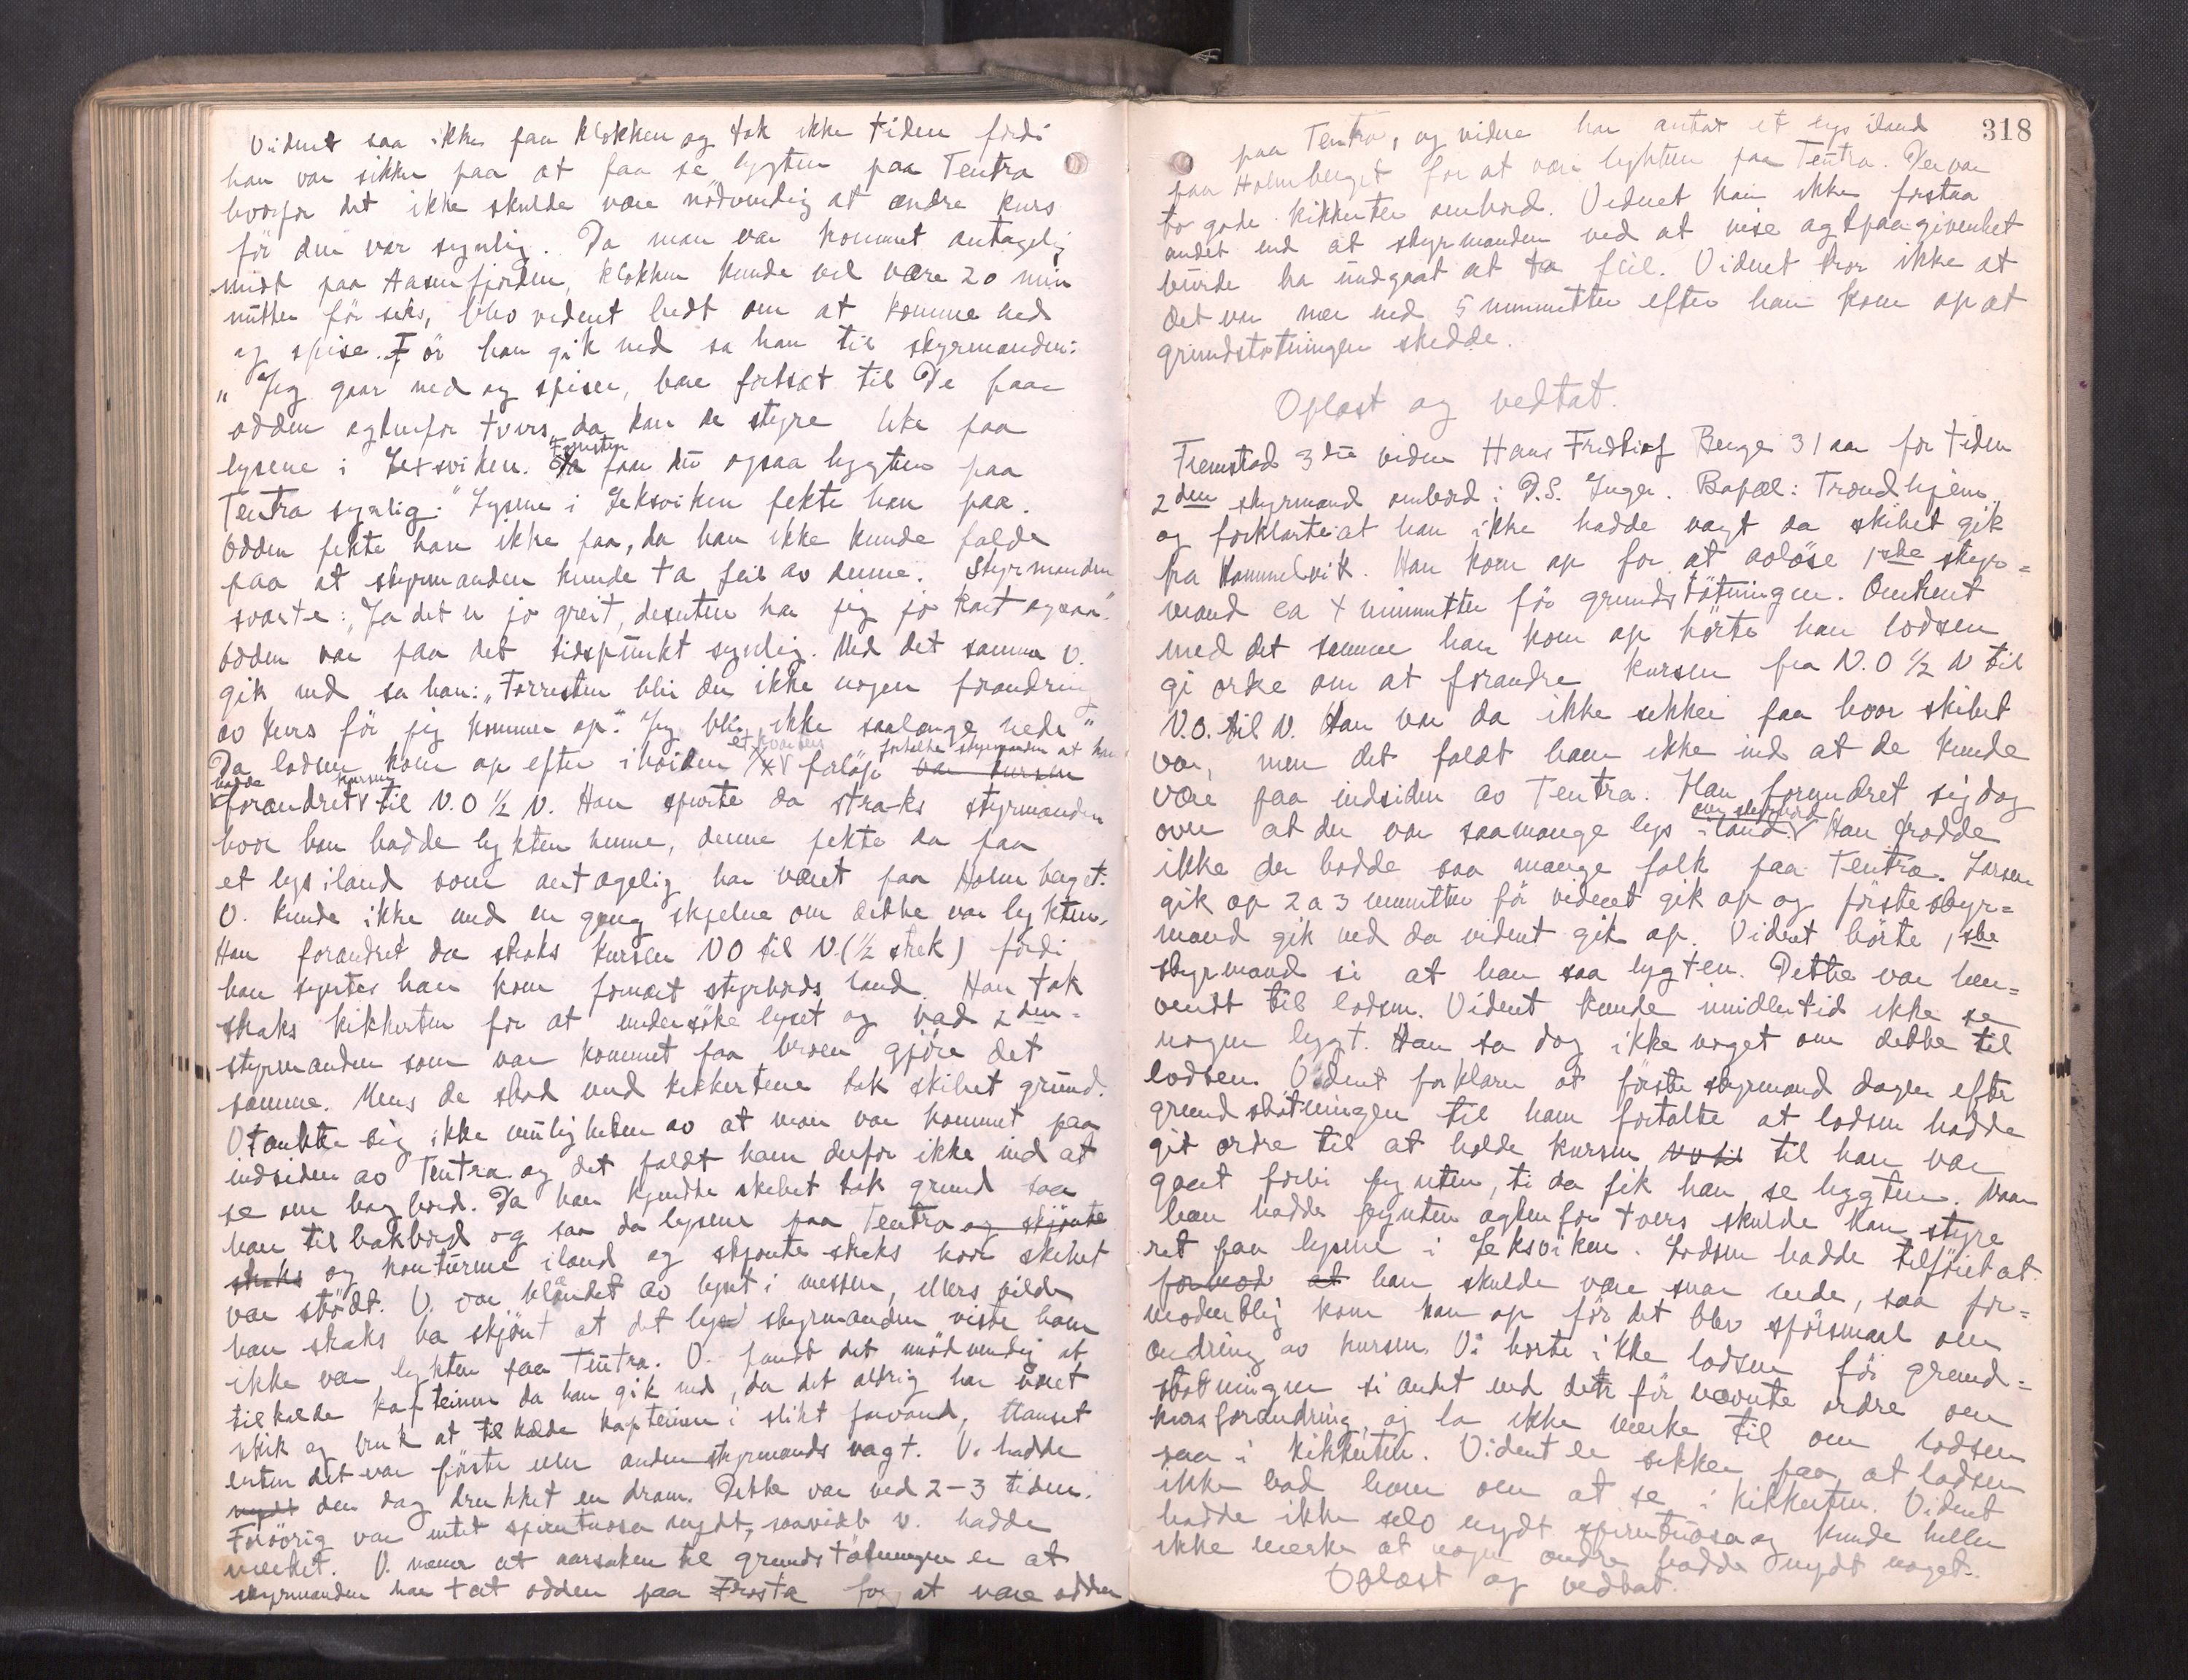 Vidnet saa ikke paa klokken og tok ikke tiden fordi
han var sikker paa at faa se lygten paa Tentra
hvorfor det ikke skulde være nødvendig at ændre kurs
för den var synlig. Da man var kommet antagelig
midt paa Aasenfjorden, klokken kunde vel være 20 min
nutter för seks, blev vidnet budt om at komme ned
og spise. För han gik ned sa han til styrmanden:
"Jeg gaar ned og spiser, bare fortsæt til De faar
odden agtenfor tvers, da kan de styre like paa
lysene i Leksviken. Forresten faar du ogsaa lygten paa
Tentra synlig." Lysene i Leksviken pekte han paa.
Odden pekte han ikke paa, da han ikke kunde falde
paa at styrmanden kunde ta feil av denne. Styrmanden
svarte: "Ja det er jo greit, desuten har jeg jo kart ogsaa."
Odden var paa det tidspunkt synlig. Med det samme V.
gik ned sa han: "Forresten blir der ikke nogen forandring
av kurs för jeg kommer op." Jeg blir ikke saalænge nede"
Da lodsen kom op efter i høiden et kvarters forløp fortalte styrmanden at han
hadde forandret kursen til N.O ½ N. Han spurte da straks styrmanden
hvor han hadde lykten henne, denne pekte da paa
et lys iland som antagelig har været paa Holmberget.
V. kunde ikke med en gang skjelne om dette var lykten.
Han forandret da straks kursen NO til N (½ strek) fordi
han syntes han kom fornært styrbords land. Han tok
straks kikkerten for at undersöke lyset og bad 2den
styrmanden som var kommet paa broen gjöre det
samme. Mens de stod med kikkertene tok skibet grund.
V. tænkte sig ikke muligheten av at man var kommet paa
indsiden av Tentra og det faldt ham derfor ikke ind at
se om bagbord. Da han kjendte skibet tok grund saa
han til bakbord og saa da lysene paa Tentra og skjönte
straks og konturene iland og skjönte straks hvor skibet
var stödt. V. var blændet av lyset i messen, ellers vilde
han straks ha skjönt at det lys styrmanden viste ham
ikke var lykten paa Tentra. V. fandt det unödvendig at
tilkalde kapteinen da han gik ned, da det aldrig har været
skik og bruk at tilkalde kapteinen i slikt farvand, uanset
enten det var förste eller anden styrmands vagt. V. hadde
nydt den dag drukket en dram. Dette var ved 2-3 tiden.
Forövrig var intet spirituosa nydt, saavidt v. hadde
merket. V. mener at aarsaken til grundstötningen er at
styrmanden har tat odden paa Frosta for at være odden
318
paa Tentra, og videre har antat et lys iland
paa Holmberget for at være lykten paa Tentra. Der var
to gode kikkerter ombord. Vidnet kan ikke forstaa
andet end at styrmanden ved at vise agtpaagivenhet
burde ha undgaat at ta feil. Vidnet tror ikke at
det var mer end 5 minutter efter han kom op at
grundstøtningen skedde.
Oplæst og vedtat.
Fremstod 3die vidne Hans Fredtjof Berge 31 aar for tiden
2den styrmand ombord i D.S. Inger. Bopæl: Trondhjem
og forklarte at han ikke hadde vagt da skibet gik
fra Hommelvik. Han kom op for at avlöse 1ste styr=
mand ca 4 minutter för grundstötningen. Omtrent
med det samme han kom op hørte han lodsen
gi ordre om at forandre kursen fra N.O ½ N til
N.O. til N. Han var da ikke sikker paa hvor skibet
var, men det faldt ham ikke ind at de kunde
være paa indsiden av Tentra. Han forundret sig dog
over at der var saa mange lys iland om styrbord. Han trodde
ikke der bodde saa mange folk paa Tentra. Lodsen
gik op 2 a 3 minutter för vidnet gik op og förstestyr=
mand gik ned da vidnet gik op. Vidnet hörte 1ste
styrmand si at han saa lygten. Dette var hen=
vendt til lodsen. Vidnet kunde imidlertid ikke se
nogen lygt. Han sa dog ikke noget om dette til
lodsen. Vidnet forklarer at förste styrmand dagen efter
grundstötningen til ham fortalte at lodsen hadde
git ordre til at holde kursen NO til til han var
gaat forbi pynten, ti da fik han se lygten. Naar
han hadde pynten agtenfor tvers skulde han styre
ret paa lysene i Leksviken. Lodsen hadde tilföiet at
formod at han skulde være snar nede, saa for=
modentlig kom han op för det blev spörsmaal om
ændring av kursen. V. hörte ikke lodsen för grund=
stötningen si andet end dette för nævnte ordre om
kursforandring, og la ikke merke til om lodsen
saa i kikkerten. Vidnet er sikker paa at lodsen
ikke bad ham om at se i kikkerten. Vidnet
hadde ikke selv nydt spirituosa og kunde heller
ikke merke at nogen andre hadde nydt noget.
Oplæst og vedtat.